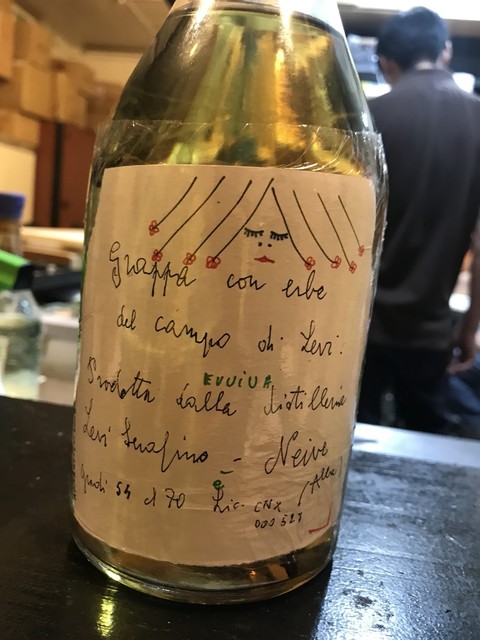 Grappa con erbe
del campo di Levi.
EVVIVA
Prodotta dalla distilleria
Levi Serafino - Neive
gradi 54 cl 70 Lic. CNX (Alba)
000 521